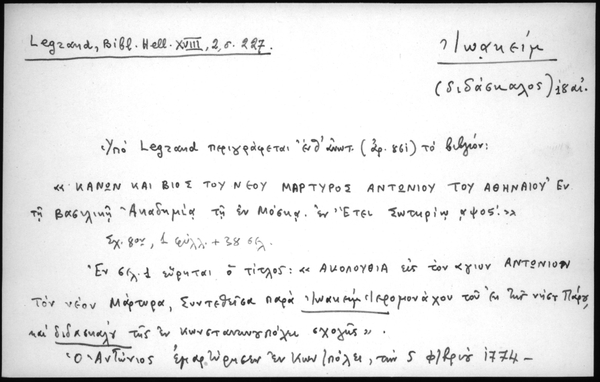 Legrand, Bibl. Hell. XVIII, 2, σ. 227.
Ἰωακείμ
(διδάσκαλος) 18 αἰ.
Ὑπό Legrand περιγράφεται ἐνθ' ἀνωτ. (ἀρ. 851) τό βιβλίον:
« ΚΑΝΩΝ ΚΑΙ ΒΙΟΣ ΤΟΥ ΝΕΟΥ ΜΑΡΤΥΡΟΣ ΑΝΤΩΝΙΟΥ ΤΟΥ ΑΘΗΝΑΙΟΥ Ἐν
τῇ Βασιλικῇ Ἀκαδημίᾳ τῇ ἐν Μόσχᾳ. ἐν Ἔτει Σωτηρίῳ ͵αψοέ. »
Σχ. 8ον, 1 φύλλ. + 38 σελ.
Ἐν σελ. 1 εὕρηται ὁ τίτλος: « ΑΚΟΛΟΥΘΙΑ εἰς τόν ἅγιον ΑΝΤΩΝΙΟΝ
τόν νέον Μάρτυρα, Συντεθεῖσα παρά Ἰωακείμ Ἱερομονάχου τοῦ ἐκ τῆς νήσου Πάρου,
καί διδασκάλου τῆς ἐν Κωνσταντινουπόλει σχολῆς ».
Ὁ Ἀντώνιος ἐμαρτύρησεν ἐν Κων/πόλει, τήν 5 φ/βρίου 1774 –